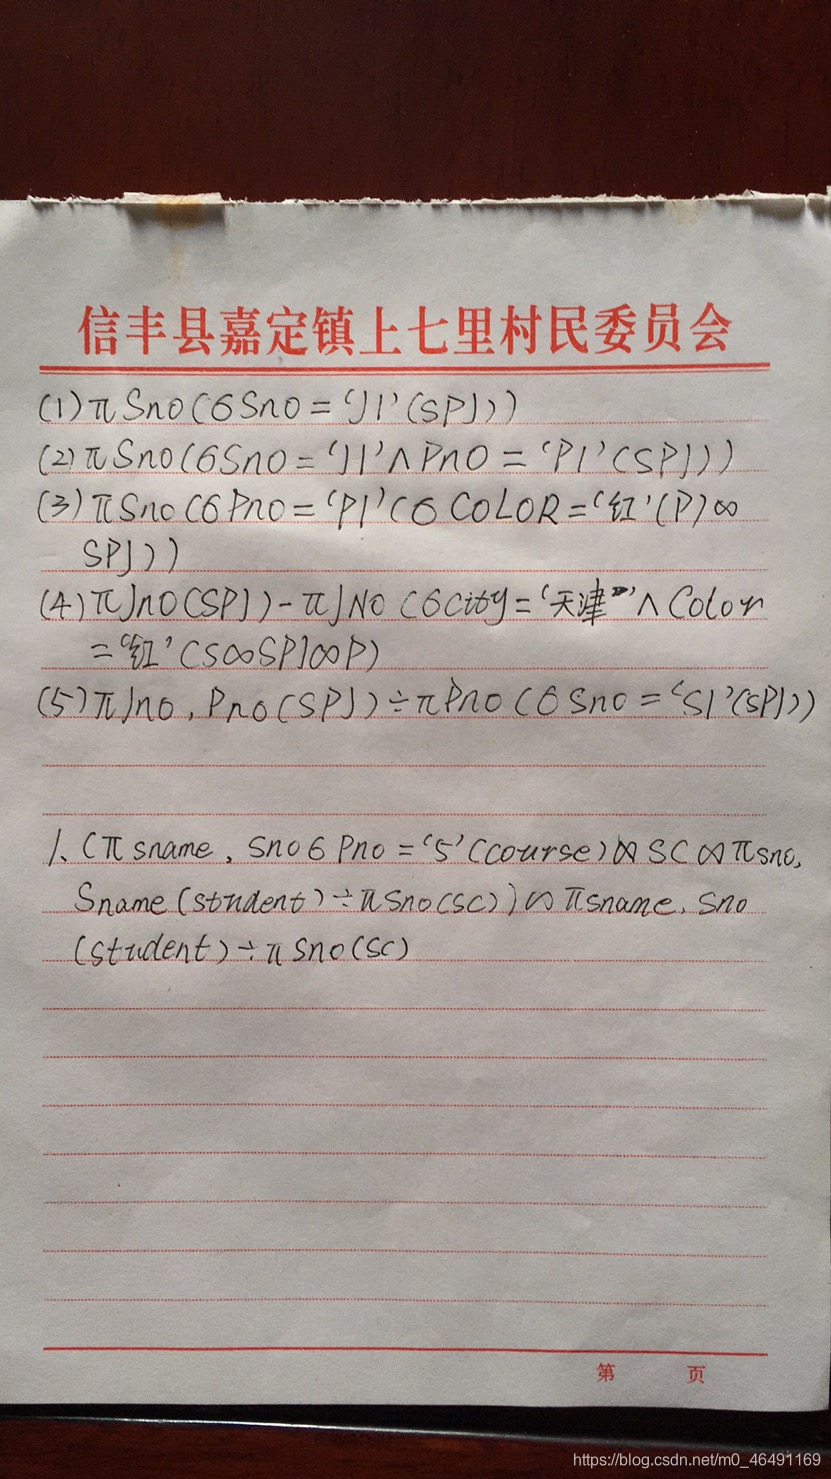 信丰县嘉定镇上七里村民委员会
(1)π Sno(6Sno=‘J1’(SPJ))
(2)πSno(6Sno=‘J1’∧PnO=‘P1’(SPJ))
(3)πSno(6Pno=‘P1’(6COLOR=‘红’(P)∞
SPJ))
(4)πJnO(SPJ)-πJNO(6City=‘天津’∧Color
=‘红’(S∞SPJ∞P)
(5)πJno,Pno(SPJ)÷πPno(6Sno=‘S1’(SPJ))
1、(πsname,Sno6Pno=‘5’(course)⋈SC∞πsno,
Sname(student)÷πSno(SC))∞πsname,Sno
(student)÷πSno(SC)
第 页
https://blog.csdn.net/m0_46491169